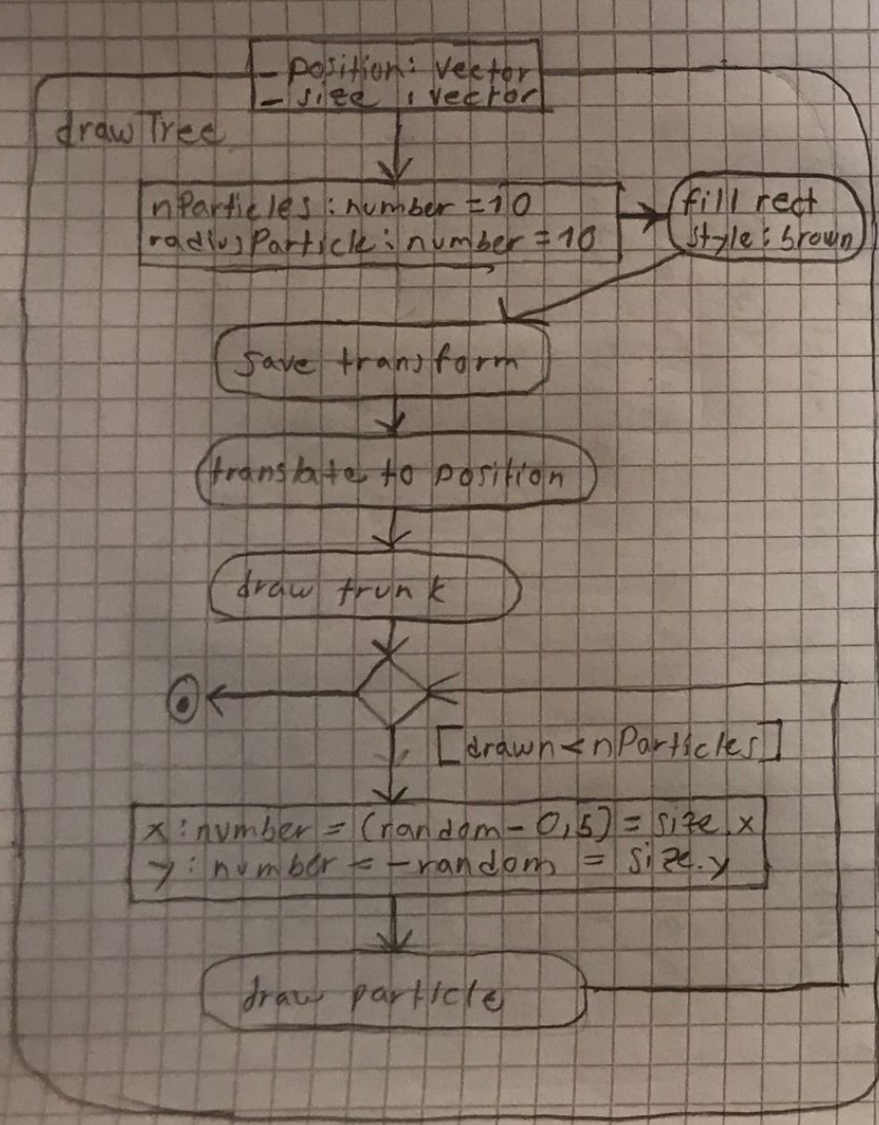 - position: vector
- size : vector
drawTree
nParticles : number = 10
radiusParticle : number = 10
fill rect
style : brown
save transform
translate to position
draw trunk
[drawn < nParticles]
x : number = (random - 0,5) = size.x
y : number = - random = size.y
draw particle